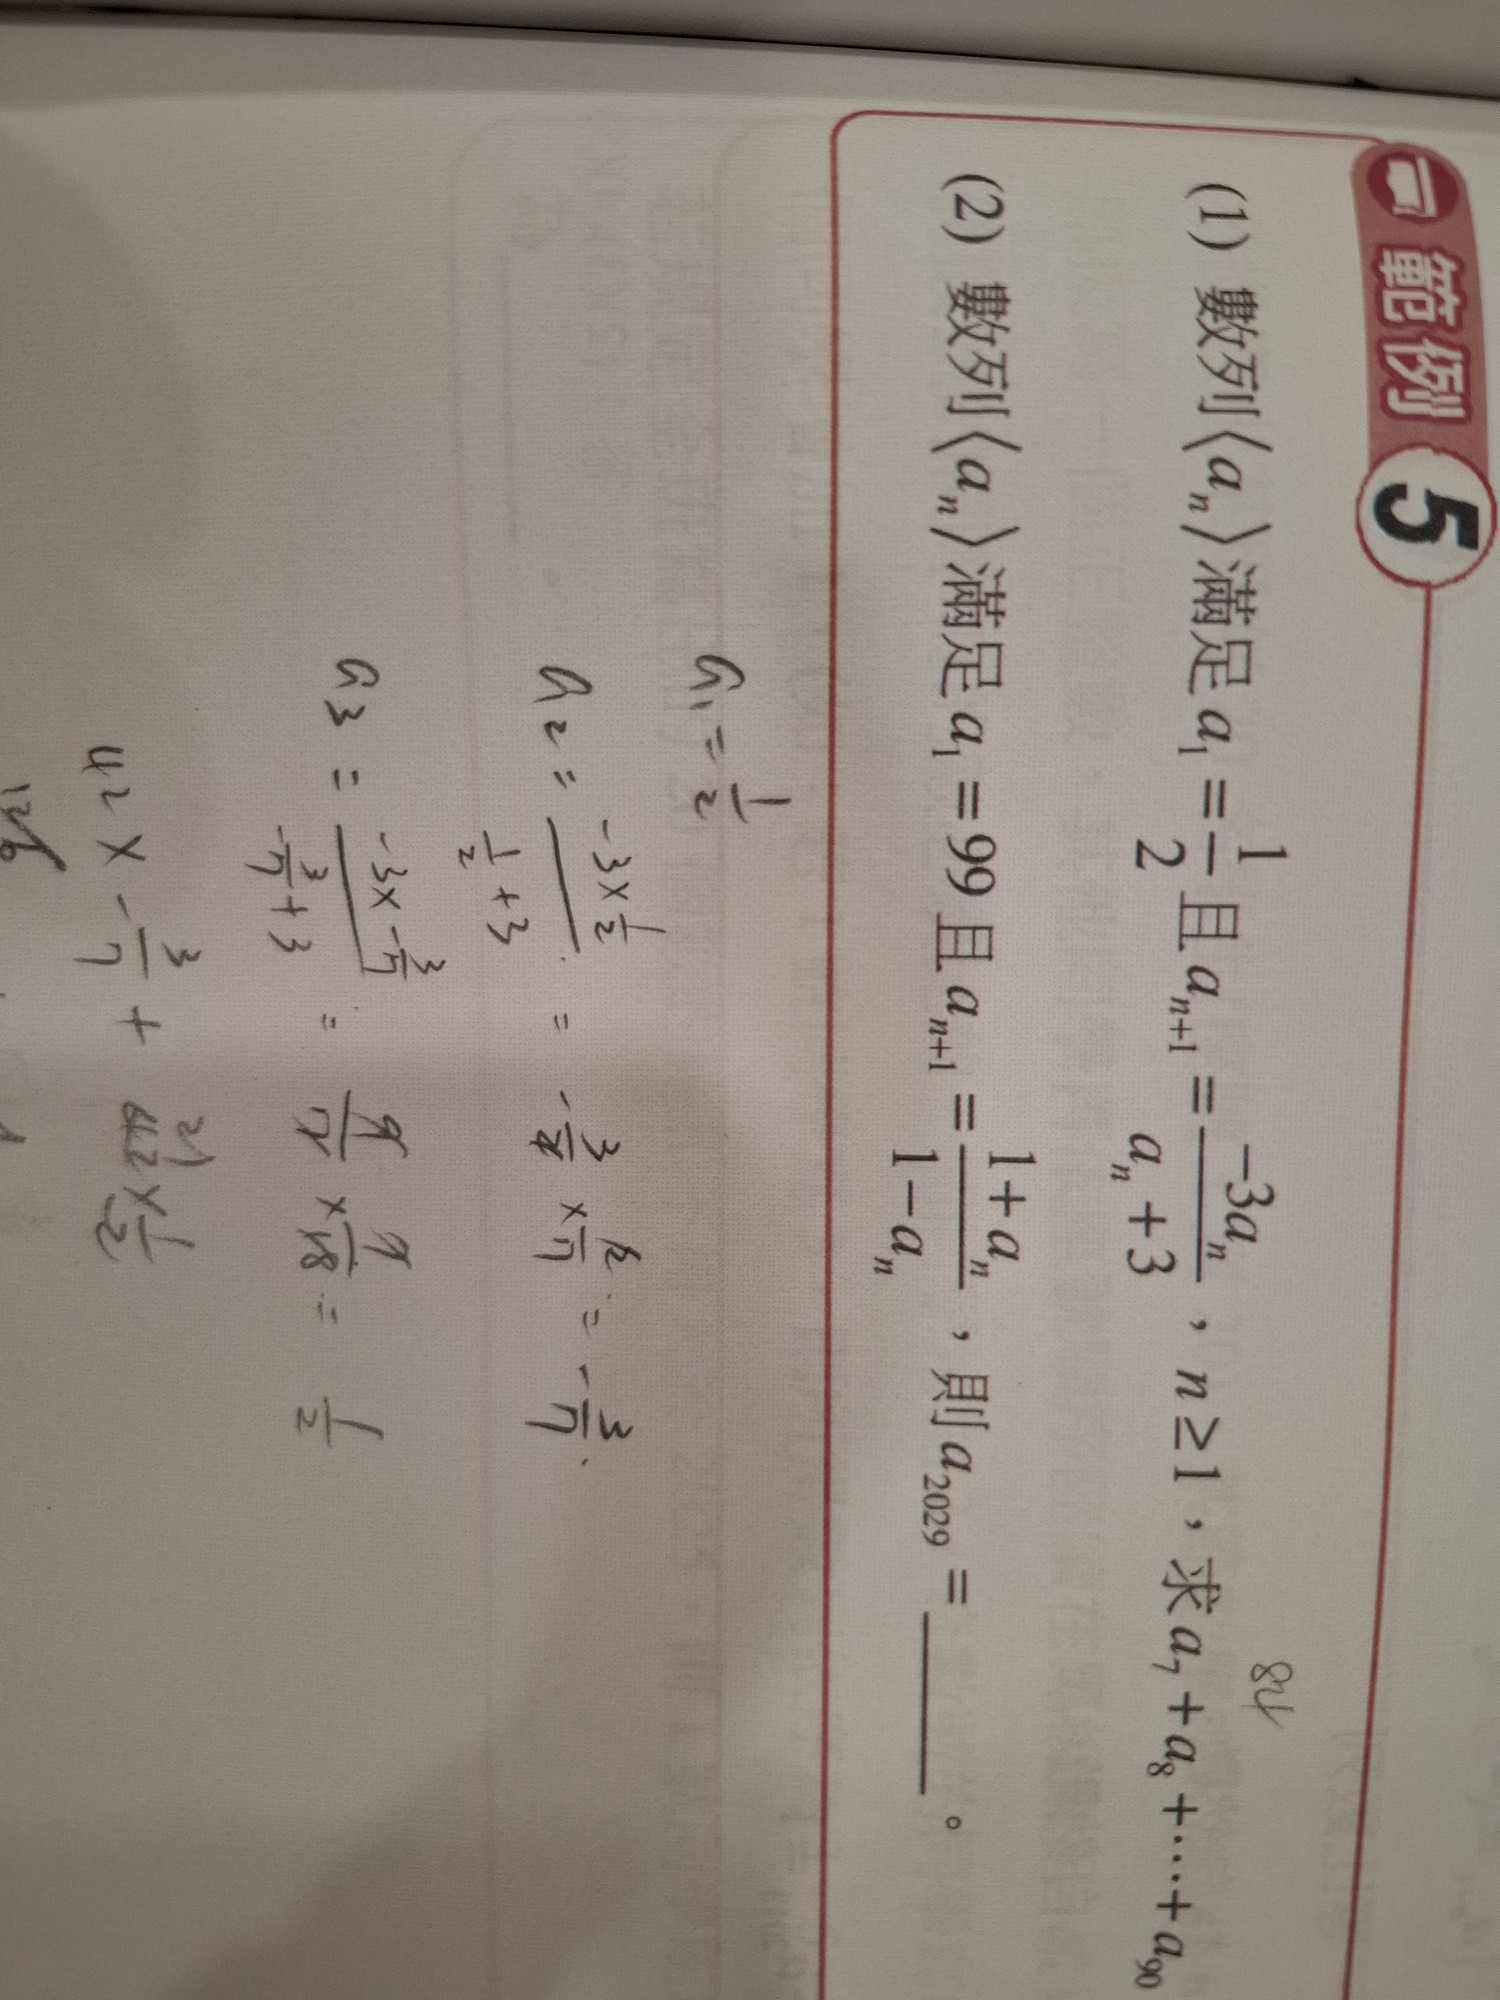 範例 5
84
(1) 數列⟨aₙ⟩滿足 a₁ = 1/2 且 aₙ₊₁ = −3aₙ / (aₙ + 3)，n ≥ 1，求 a₇ + a₈ + ⋯ + a₉₀
(2) 數列⟨aₙ⟩滿足 a₁ = 99 且 aₙ₊₁ = (1 + aₙ) / (1 − aₙ)，則 a₂₀₂₉ = ______。
a₁ = 1/2
a₂ = (−3 × 1/2) / (1/2 + 3) = −3/2 × 2/7 = −3/7
a₃ = (−3 × −3/7) / (−3/7 + 3) = 9/7 × 7/18 = 1/2
42 × −3/7 + 42 × 1/2
21